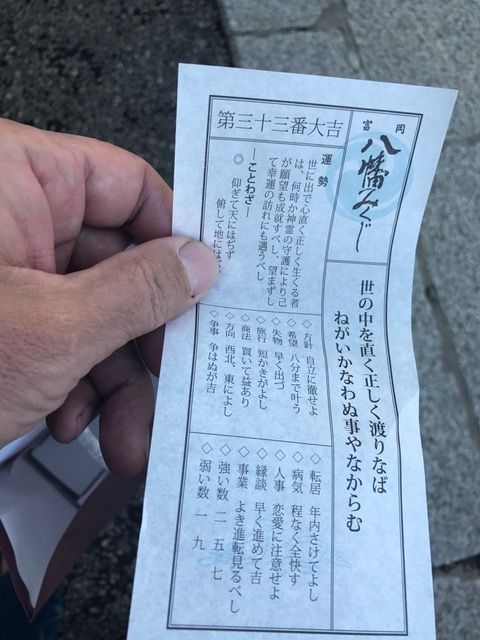 富岡
八幡みくじ
世の中を直く正しく渡りなば
ねがいかなわぬ事やなからむ
第三十三番大吉
運勢
世に出で心直く正しく生くる者
は、何時か神霊の守護により己
が願望も成就すべし、望まずし
て幸運の訪れにも遇うべし
―ことわざ―
◎ 仰ぎて天にはぢず
俯して地には
◇方針 自立に徹せよ
◇希望 八分まで叶う
◇失物 早く出づ
◇旅行 短かきがよし
◇商法 買いて益あり
◇方向 西北、東によし
◇争事 争はぬが吉
◇転居 年内さけてよし
◇病気 程なく全快す
◇人事 恋愛に注意せよ
◇縁談 早く進めて吉
◇事業 よき進転見るべし
◇強い数 二 五 七
◇弱い数 一 九